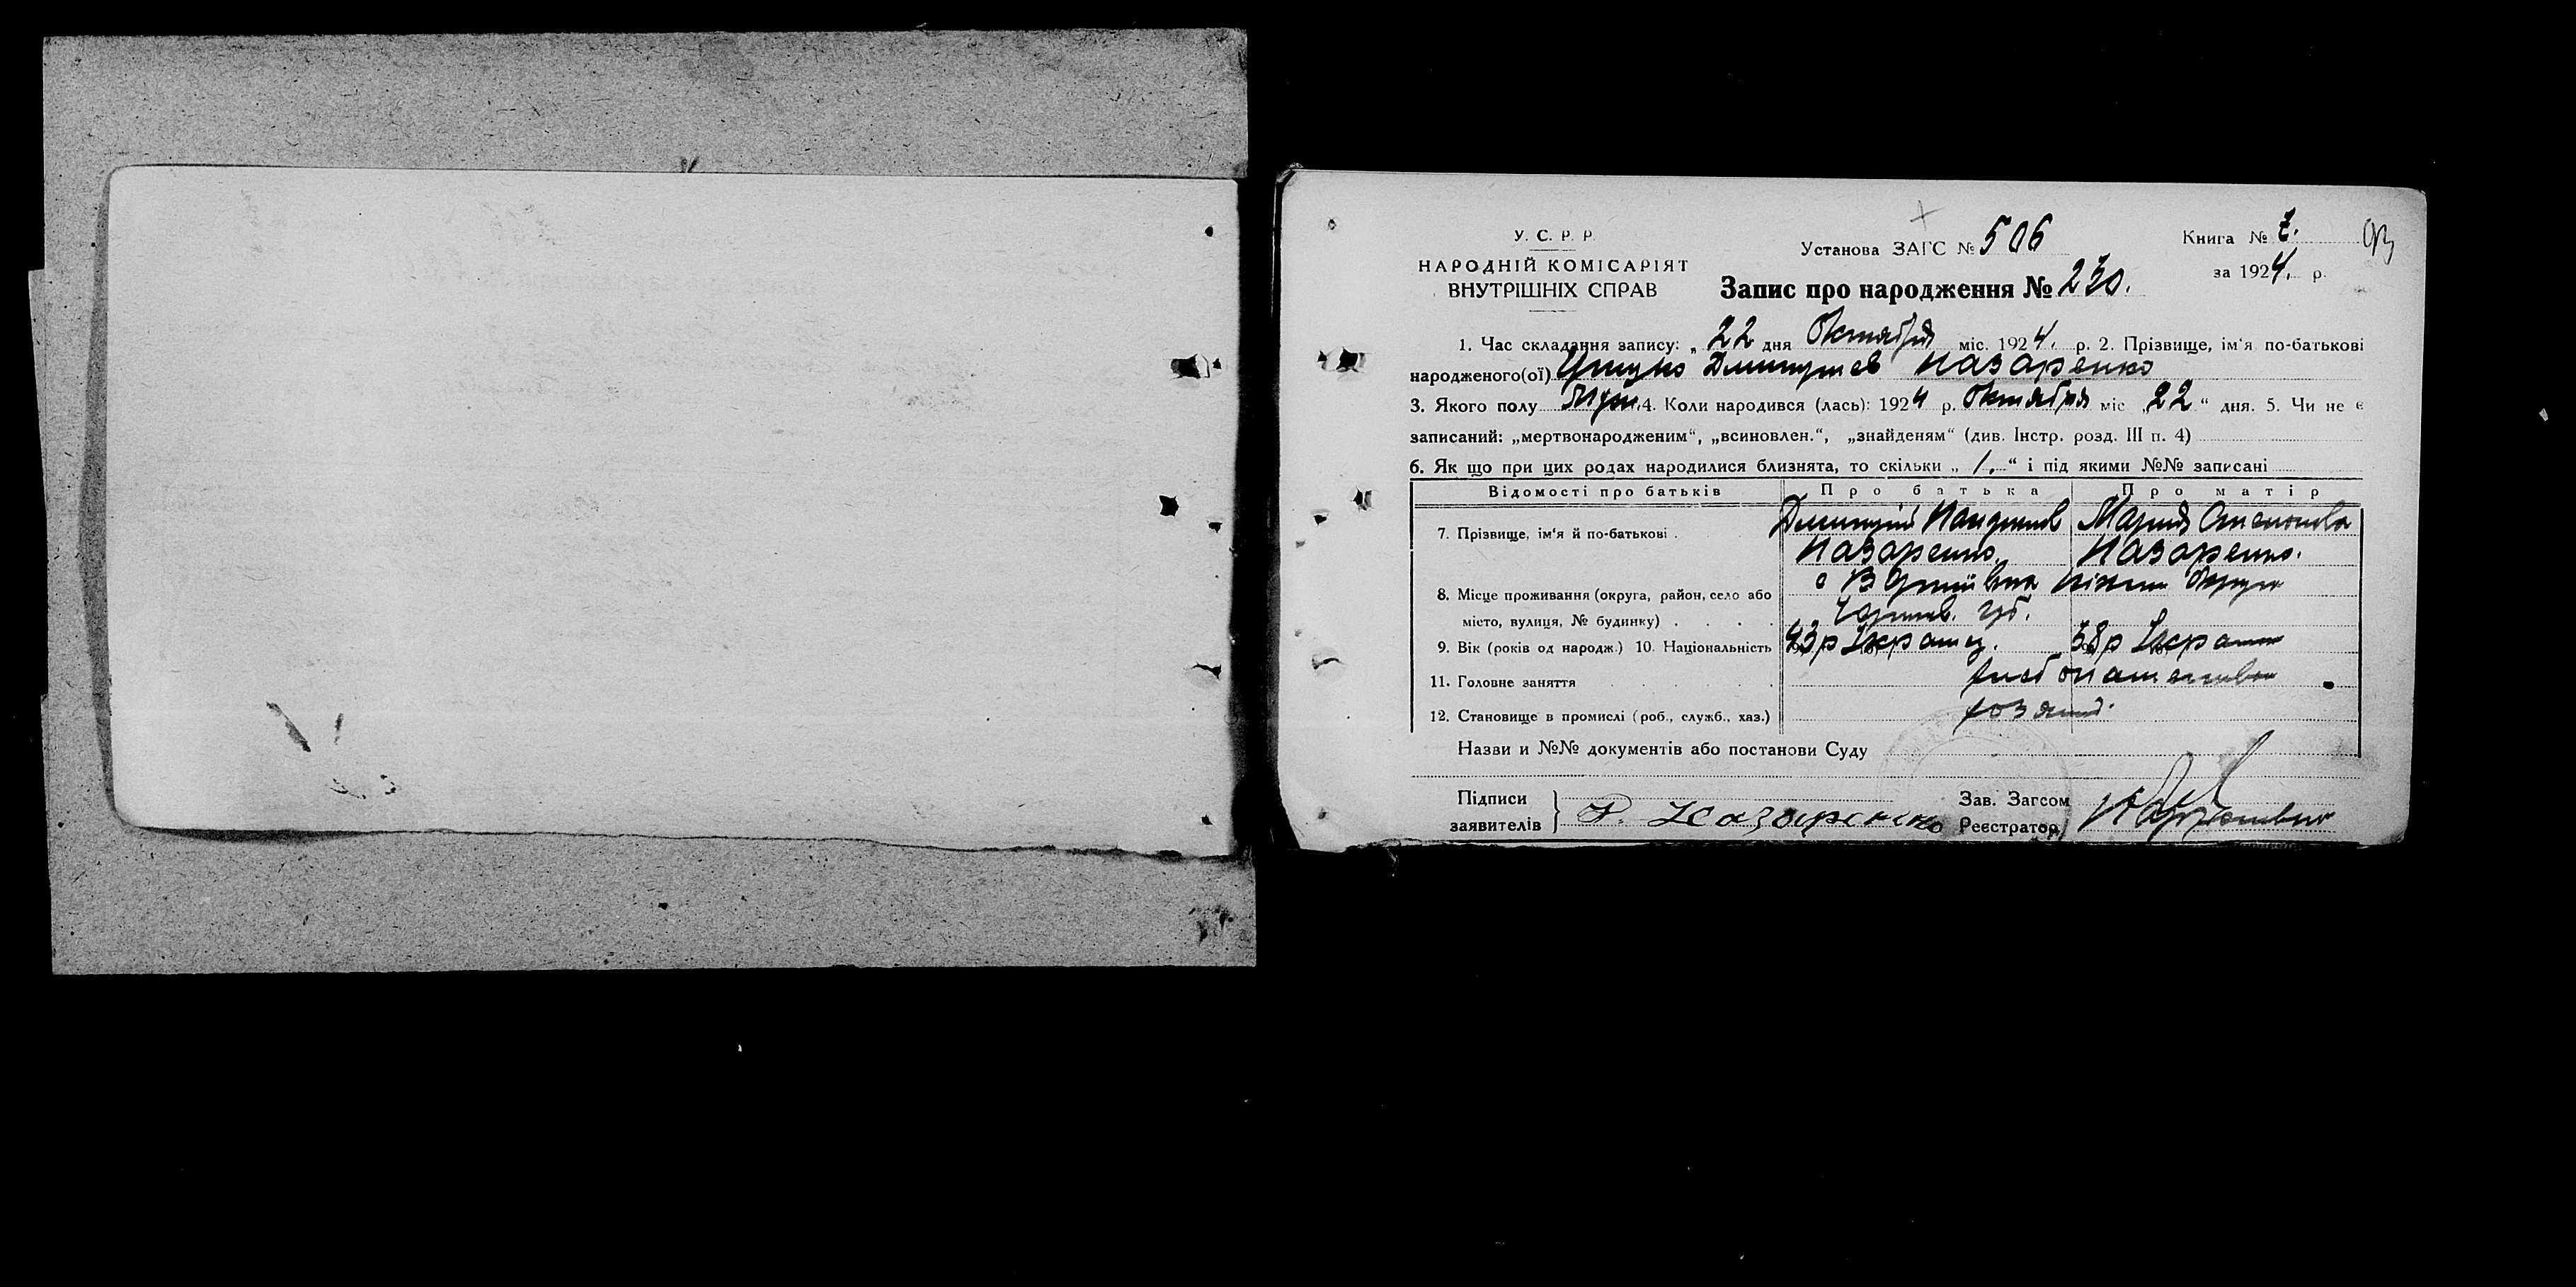 У. С. Р. Р.
НАРОДНІЙ КОМІСАРІЯТ
ВНУТРІШНІХ СПРАВ
Установа ЗАГС № 506
Запис про народження № 230.
Книга №
за 1924. р.
93
1. Час складання запису: „ 22 дня Октября міс. 1924. р. 2. Прізвище, ім'я по-батькові
народженого(ої) Назаренко
3. Якого полу Муж. 4. Коли народився (лась): 1924 р. Октября міс „22“ дня. 5. Чи не є
записаний: „мертвонародженим“, „всиновлен.“, „знайденям“ (див. Інстр. розд. III п. 4)
6. Як що при цих родах народилися близнята, то скільки „ 1. “ і під якими №№ записані
Відомості про батьків Про батька Про матір
7. Прізвище, ім'я й по-батькові . Дмитрій Мария
Назаренко. Назаренко.
8. Місце проживання (округа, район, село або с Ніжин Округи
місто, вулиця, № будинку) . . . . Черниг. губ.
9. Вік (років од народж.) 10. Національність 43 р Украинц. 38 р Украин
11. Головне заняття
12. Становище в промислі (роб., служб., хаз.) хозяин.
Назви и №№ документів або постанови Суду
Підписи
заявителів Назаренко
Зав. Загсом
Реєстратор